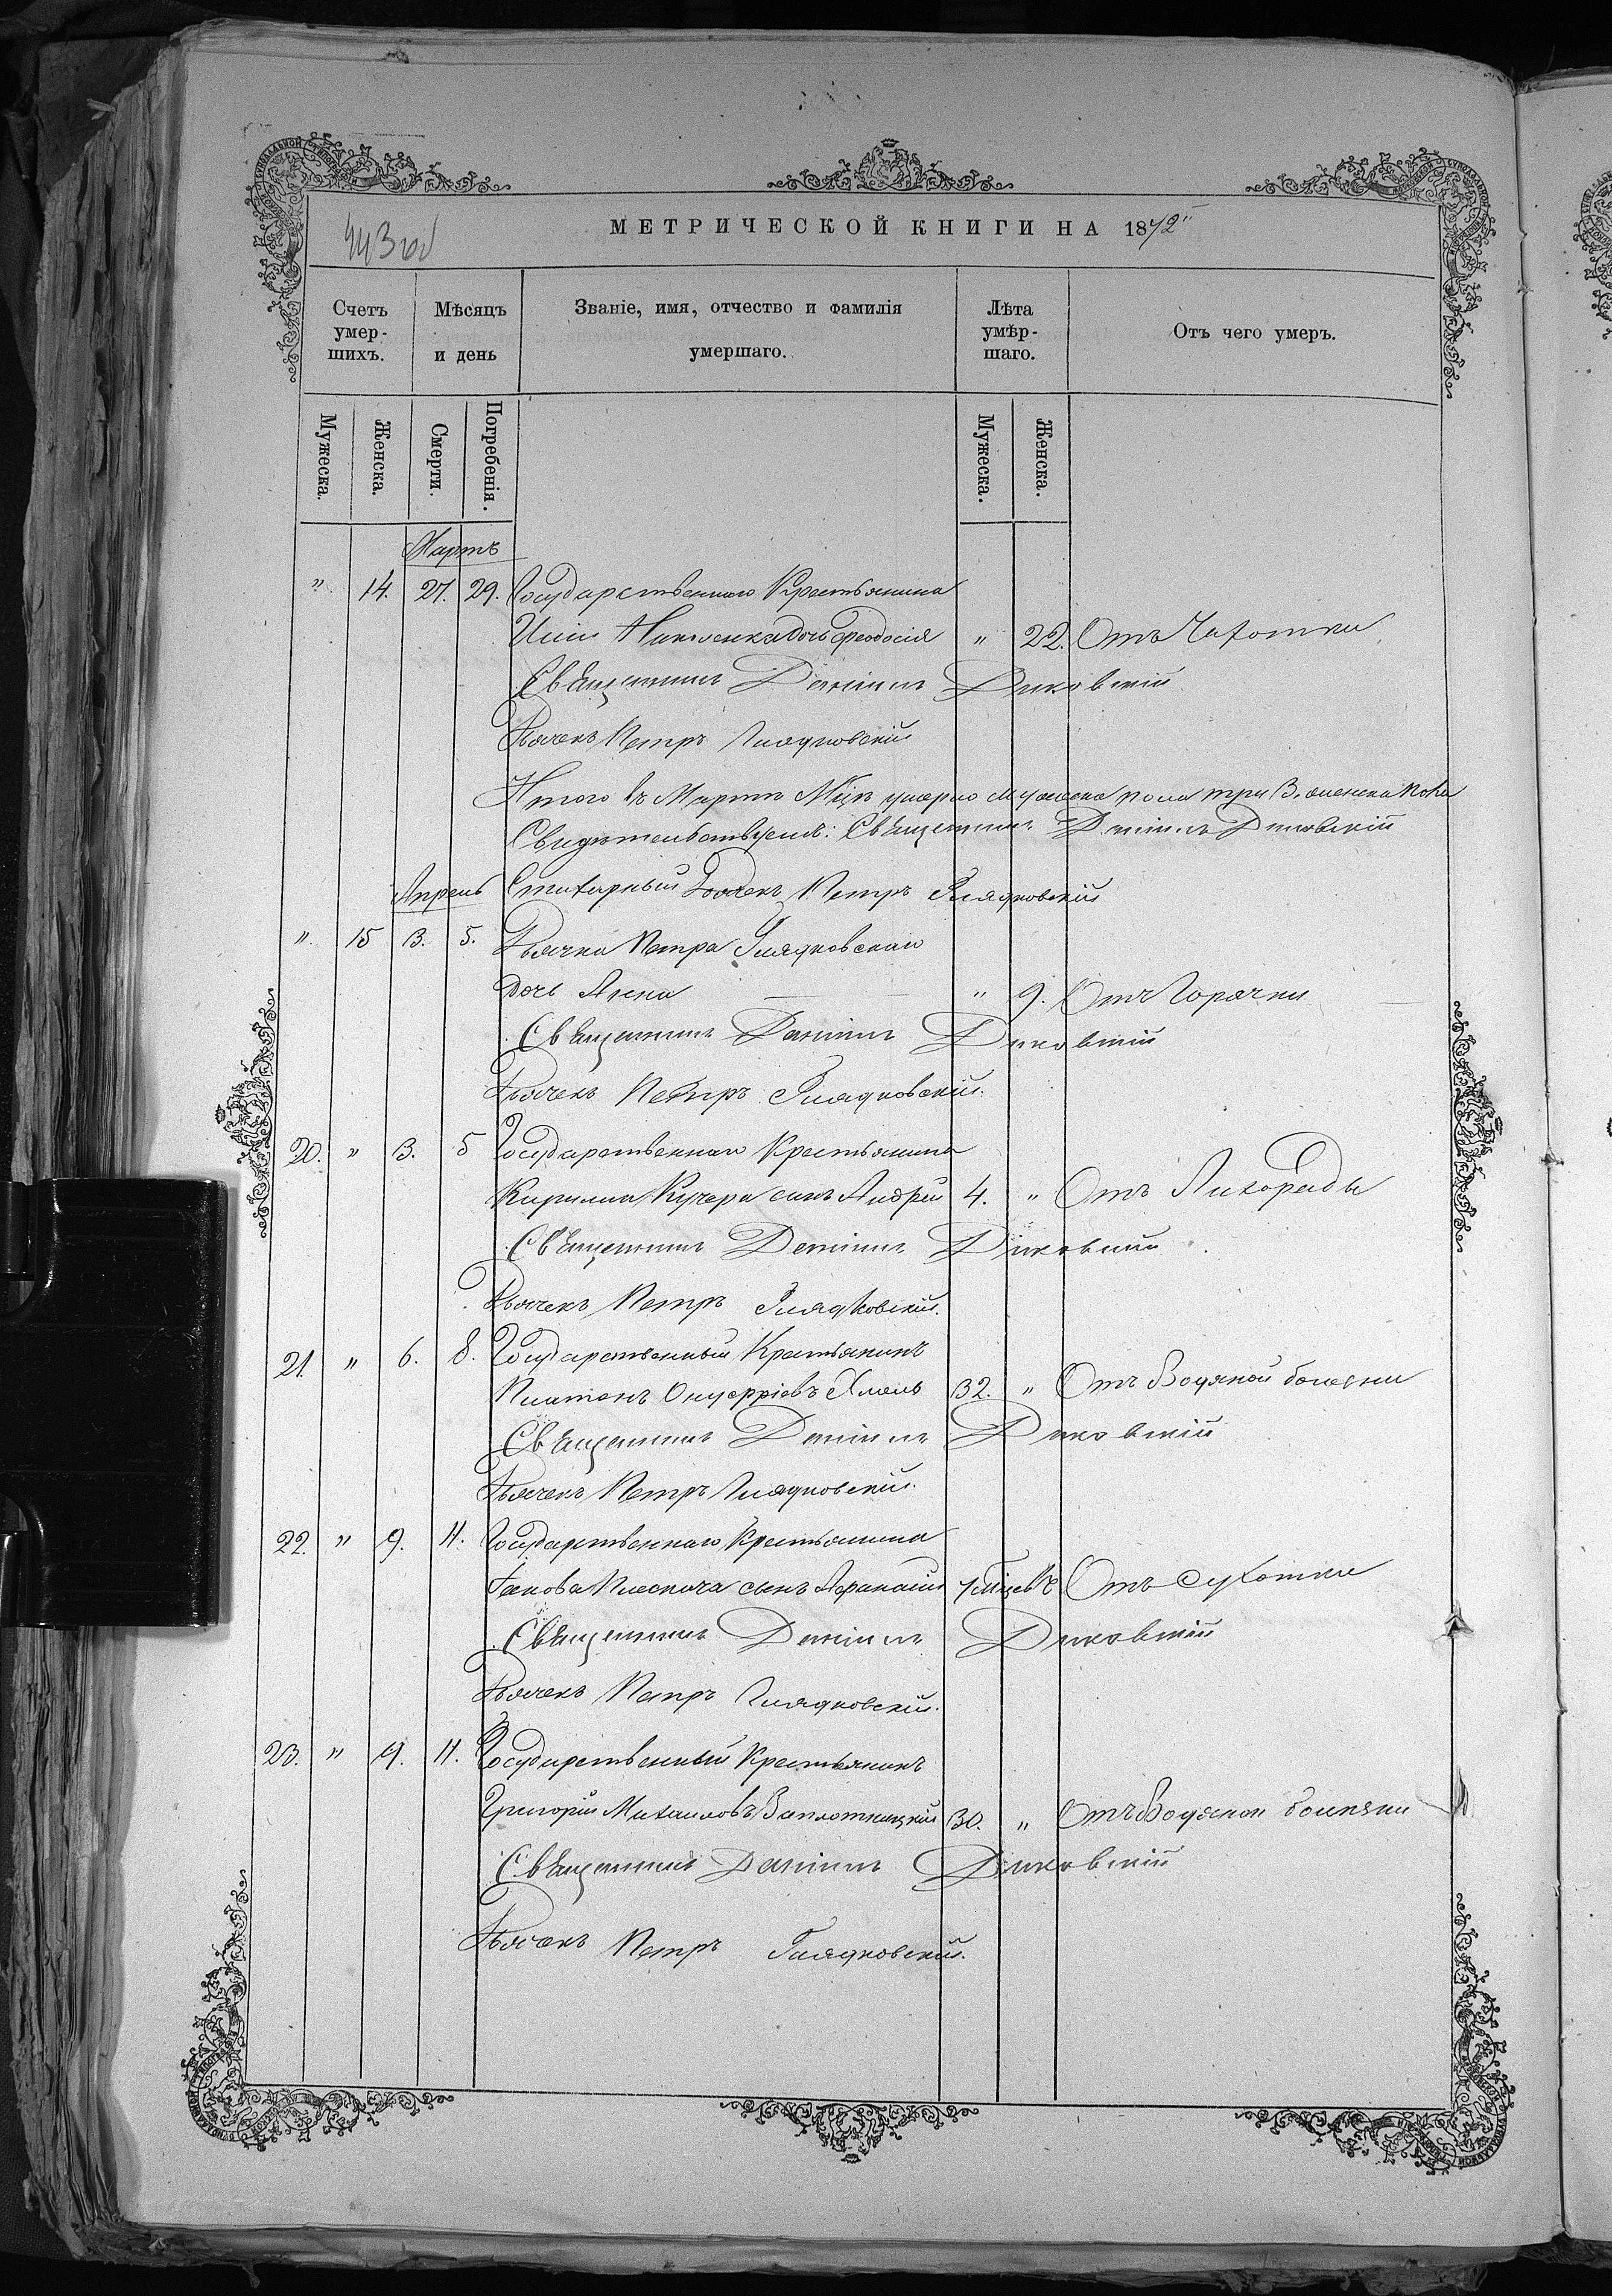 МЕТРИЧЕСКОЙ КНИГИ НА 1872
Счетъ умер-шихъ.
Мѣсяцъ и день
Званіе, имя, отчество и фамилія умершаго.
Лѣта умѣр-шаго.
Отъ чего умеръ.
Мужеска.
Женска.
Смерти.
Погребенія.
Мужеска.
Женска.
Мартъ
" 14. 27. 29. Государственнаго Крестьянина
дочь Феодосія " 22. Отъ Чахотки
Священникъ Даніилъ Диковскій
Дьячекъ Петръ Глядковскій
Итого въ Мартѣ Мцѣ умерло мужеска пола три 3. женска
Свидѣтельствуемъ: Священникъ Даніилъ Диковскій
Апрель Стихарный Дьячекъ Петръ Глядковскій
" 15 3. 5. Дьячка Петра Глядковскаго
дочь Анна " 9. Отъ Горячки
Священникъ Даніилъ Диковскій
Дьячекъ Петръ Глядковскій.
20. " 3. 5 Государственнаго Крестьянина
Кирилла Кучера сынъ Андрей 4. " Отъ Лихорады
Священникъ Даніилъ Диковскій
Дьячекъ Петръ Глядковскій.
21. " 6. 8. Государственный Крестьянинъ
Платонъ Онуфріевъ Хмель 32. " Отъ Водяной болезни
Священникъ Даніилъ Диковскій
Дьячекъ Петръ Глядковскій.
22. " 9. 11. Государственнаго Крестьянина
Іакова сынъ Афанасій Отъ Сухотки
Священникъ Даніилъ Диковскій
Дьячекъ Петръ Глядковскій.
23. " 9. 11. Государственный Крестьянинъ
Григорій Михаиловъ Заплотницкій 30. " Отъ Водяной болезни
Священникъ Даніилъ Диковскій
Дьячекъ Петръ Глядковскій.